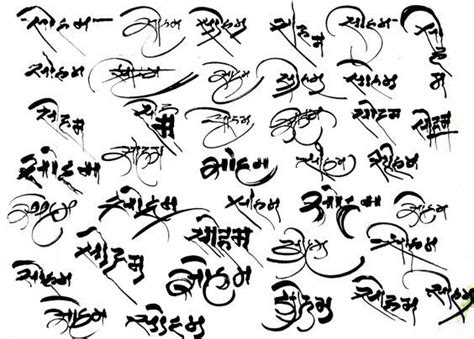 सोहम सोहम सोहम सोहम सोहम सोहम
सोहम सोहम सोहम सोहम सोहम सोहम
सोहम सोहम सोहम सोहम सोहम सोहम
सोहम सोहम सोहम सोहम सोहम
सोहम सोहम सोहम सोहम सोहम
सोहम सोहम सोहम सोहम सोहम
सोहम सोहम सोहम सोहम सोहम
सोहम सोहम सोहम